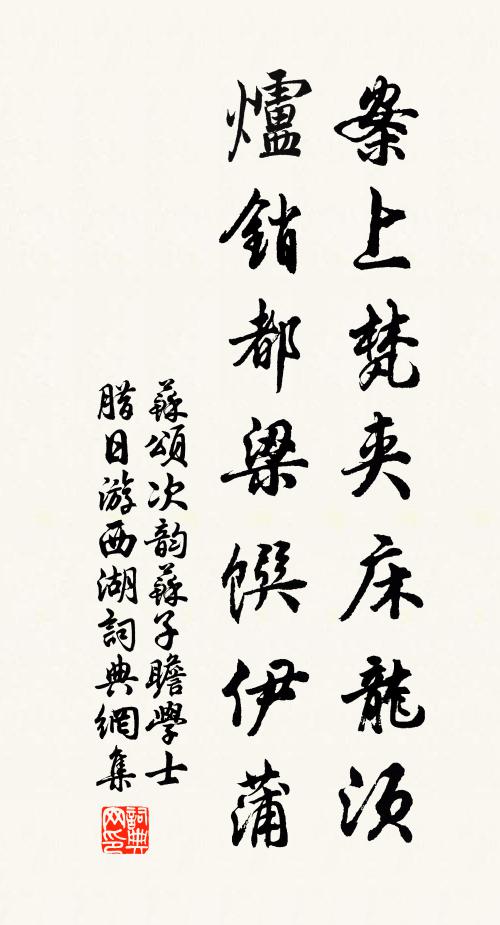 案上梵夾床龍須
爐銷都梁饌伊蒲
蘇頌次韵蘇子瞻學士
腊日游西湖詞典網集
詞典
网印